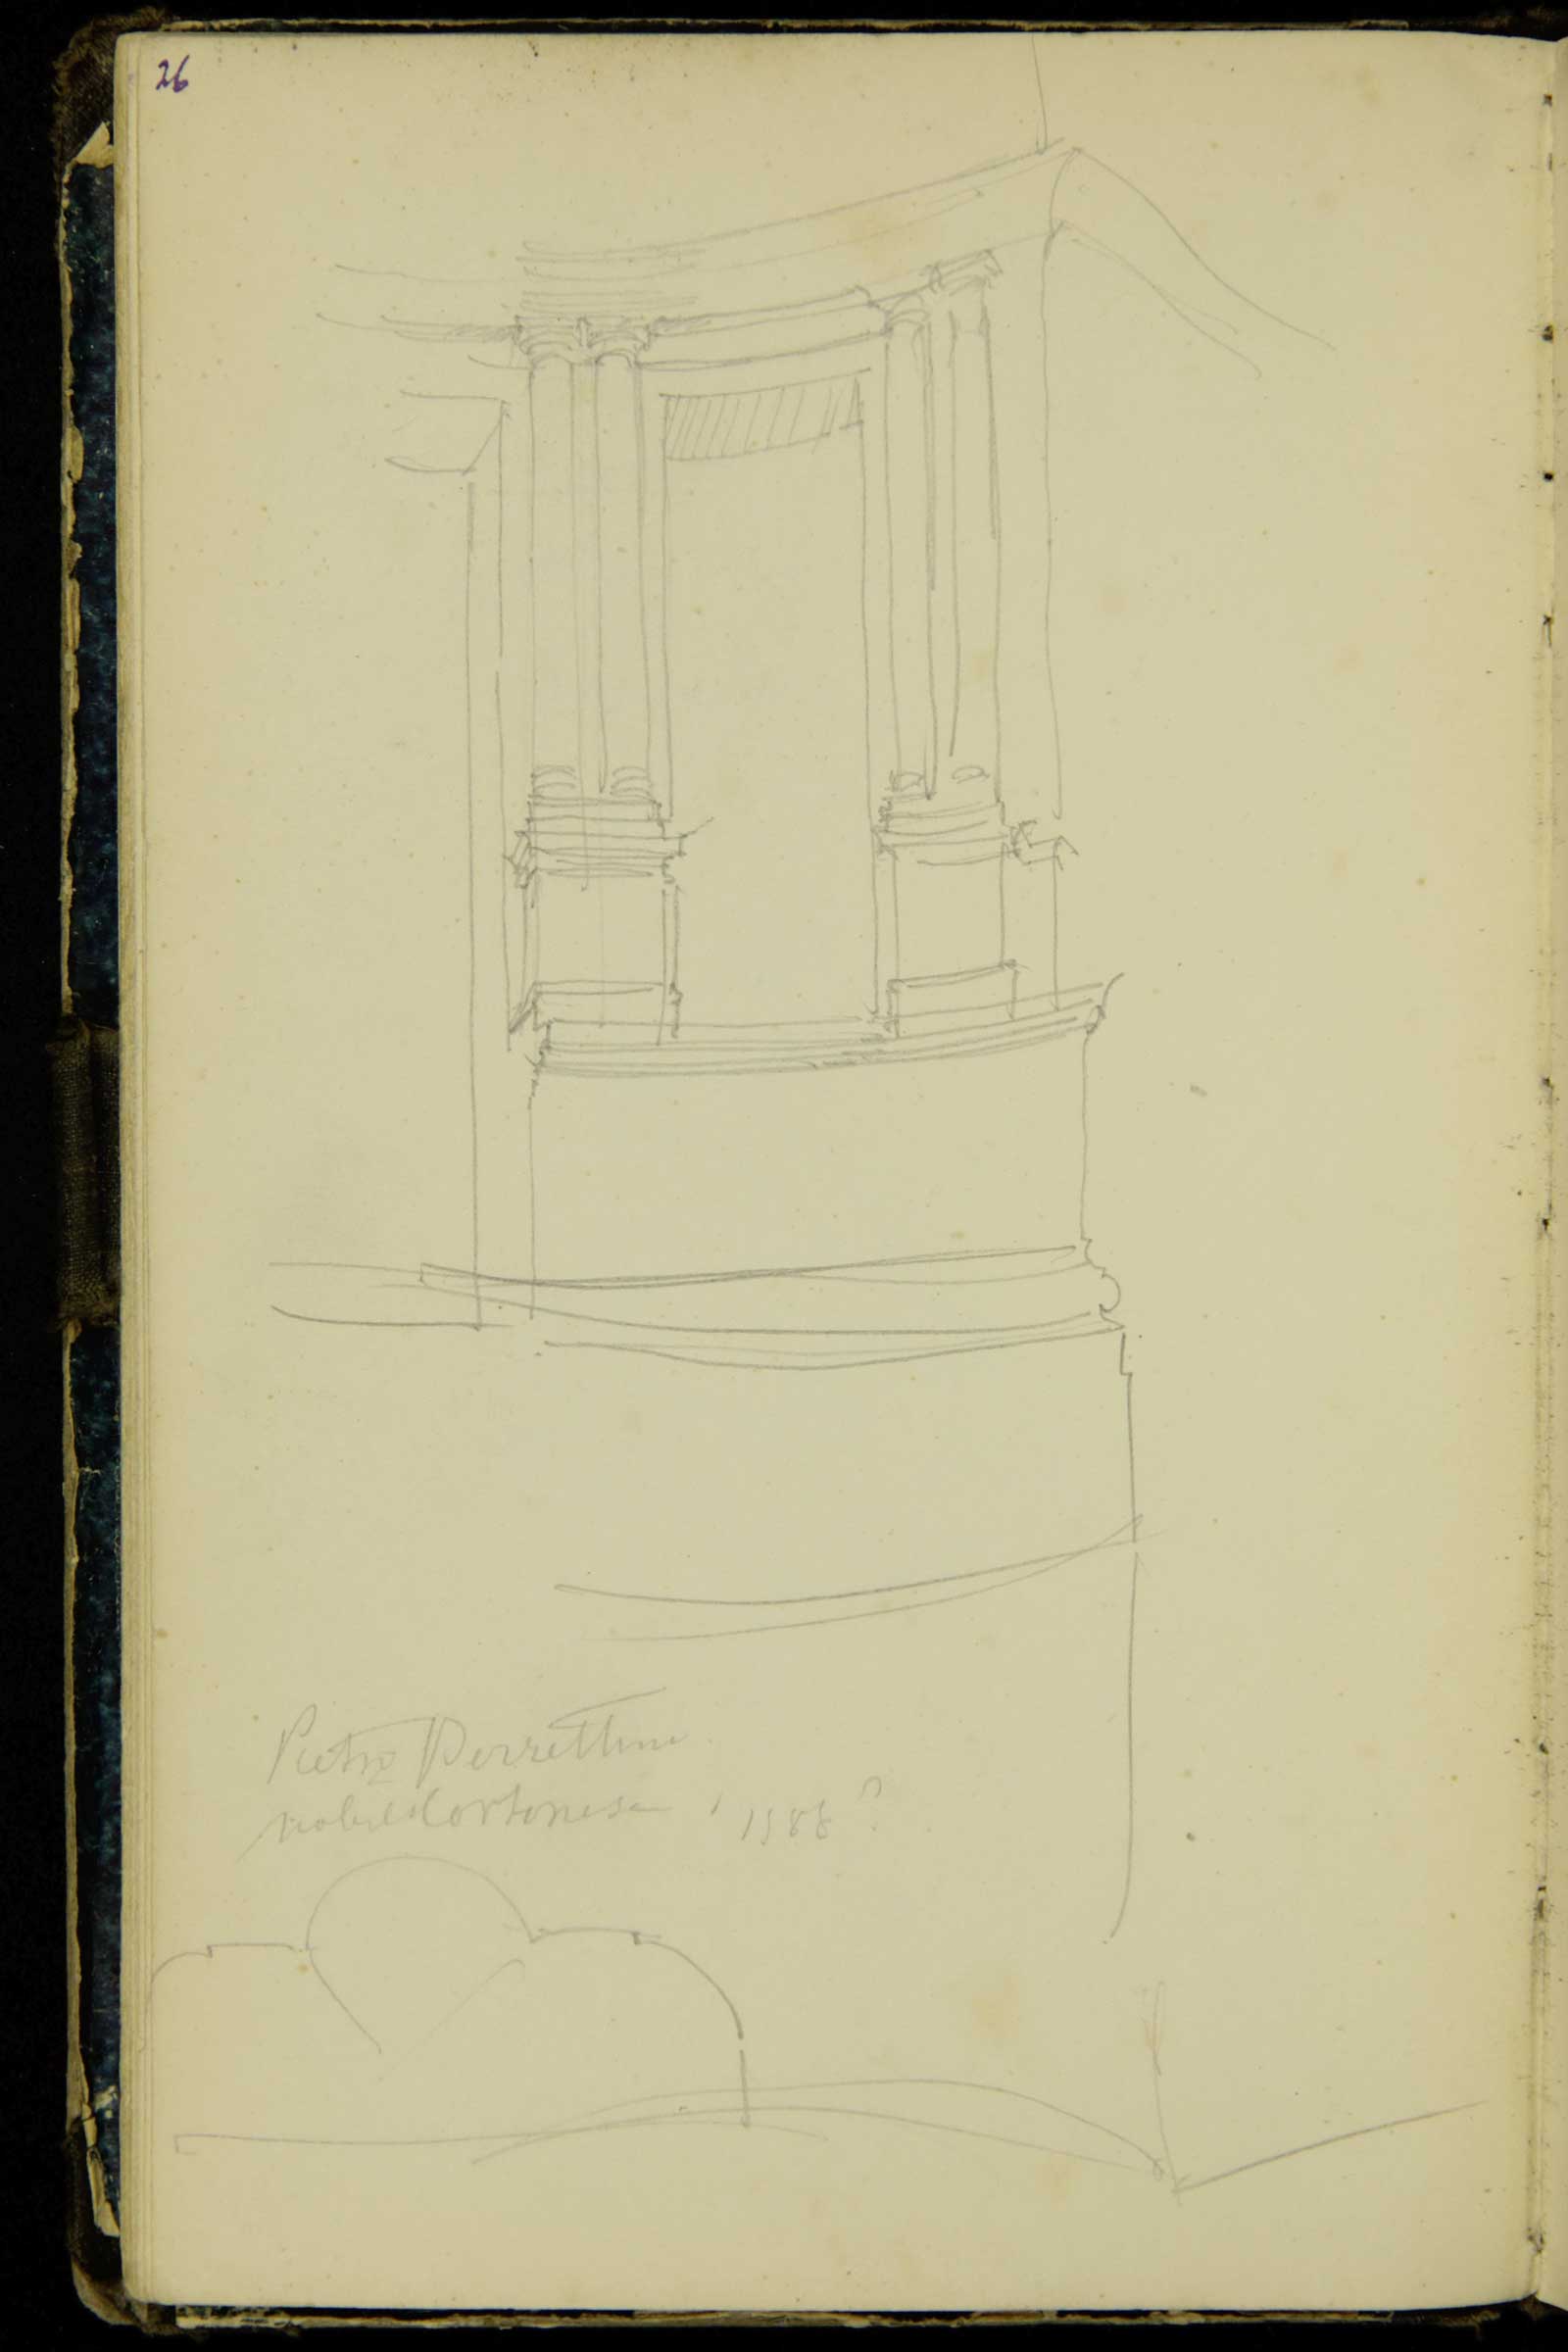 26
Pietro Perrettini
nobile Cortonese, 1588?